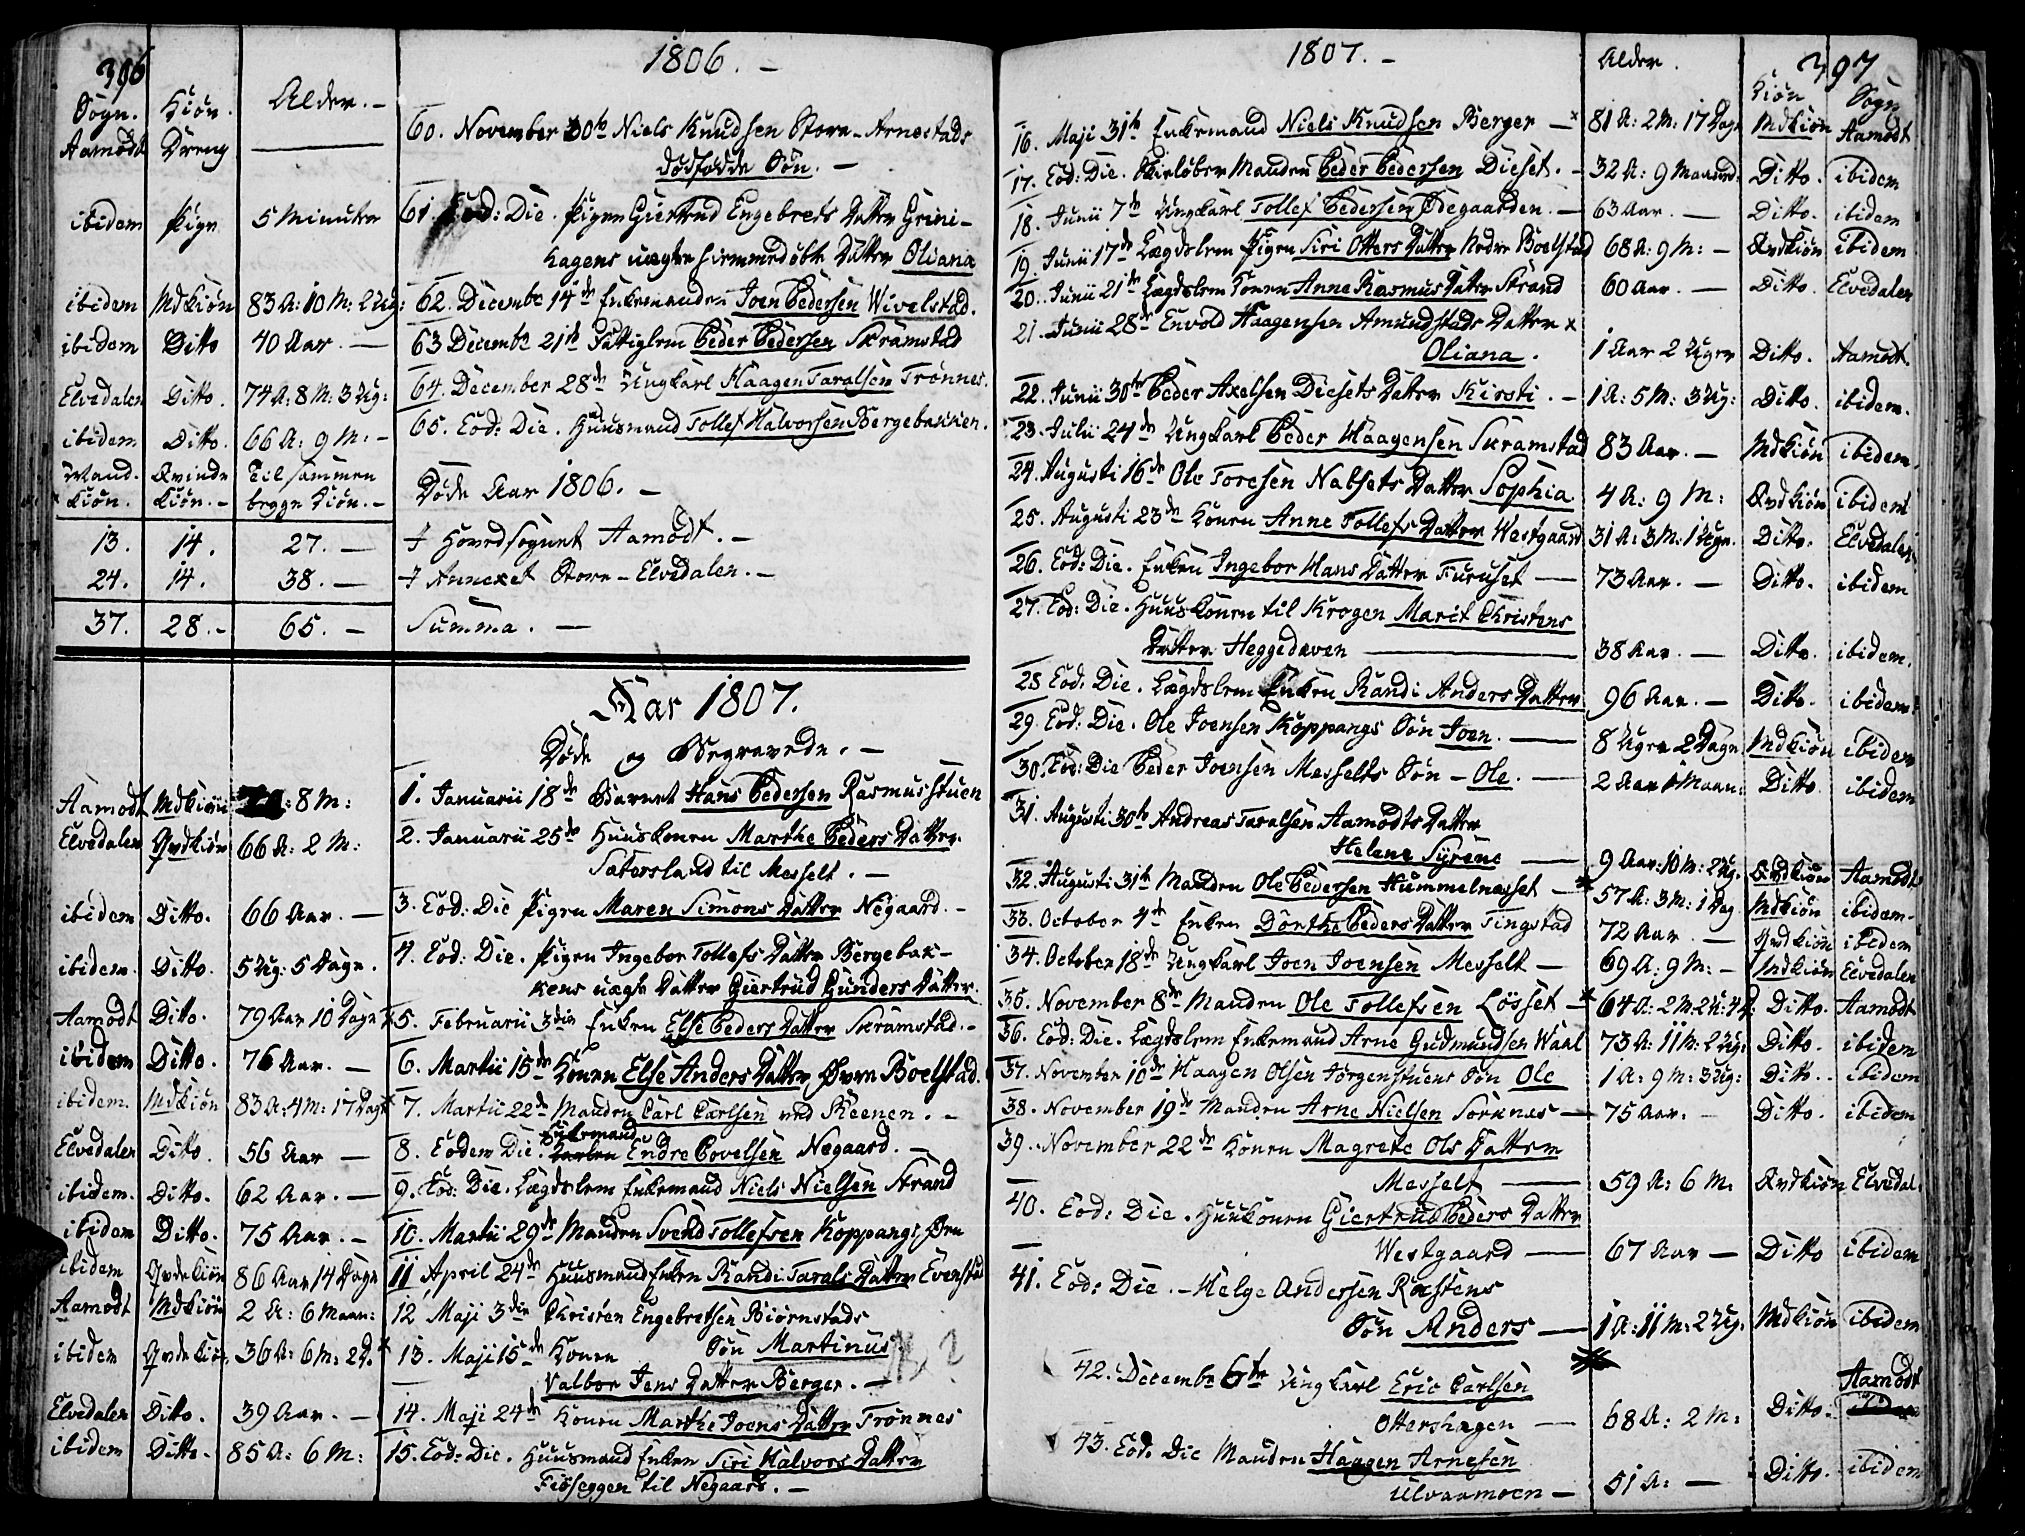 396
1806. –
Sogn. Kiön. Alder. –
Aamodt Dreng — 60. November 30te Niels Knudsen Store-Arnestads
dödfödde Sön. –
ibidem Pige 5 Minuter 61 Eod: Die. Pigen Giertrud Engebrets Datter Grini-
hagens uægte hiemmedöbte Datter Oliana
ibidem Mdkiön 83 A: 10 M: 2 Ug: 62. Decembr 14de Enkemanden Joen Pedersen Wivelstad.
ibidem Ditto 40 Aar. — 63 Decembr 21de Fattiglem Peder Pedersen Skramstad
Elvedalen Ditto. 74 A: 8 M: 3 Ug: 64. December 28de Ungkarl Haagen Taralsen Trønnes.
ibidem Ditto. 66 A: 9 M: – 65. Eod: Die. Huusmand Tollef Halvorsen Bergebakken.
Mand- Qvinde Til sammen
kiön. kiön. – begge Kiön. – Döde Aar 1806. –
13. 14. 27. — I Hovedsognet Aamodt. –
24. 14. 38. — I Annexet Store-Elvedalen. –
37. 28. – 65. – Summa. —
Aar 1807.
Döde og Begravede. –
Aamodt Mdkiön : 8 M: 1. Januarii 18de Barnet Hans Pedersen Rasmusstuen
Elvedalen Qvdkiön 66 A: 2 M: 2. Januarii 25de Huuskonen Marthe Peders Datter
Sætersland til Messelt. –
ibidem Ditto. 66 Aar. — 3. Eod: Die Pigen Maren Simons Datter Negaard. –
ibidem. Ditto. 5 Ug: 5 Dage. 4. Eod: Die. Pigen Ingebor Tollefs Datter Bergebak-
kens uægte Datter Giertrud Gunders Datter.
Aamodt Ditto. 79 Aar 10 Dage x 5. Februarii 3die Enken Else Peders Datter Skramstad. –
ibidem Ditto. 76 Aar. — 6. Martii 15de Konen Else Anders Datter Övre Boelstad.
ibidem. Mdkiön 83 A: 4 M: 17 Dage x 7. Martii 22de Manden Carl Carlsen ved Skeenen. –
Enkemand
Elvedalen Ditto. 56 Aar — 8. Eodem Die. Karlen Endre Povelsen Negaard. –
ibidem. Ditto. 62 Aar. — 9. Eod: Die. Lægdslem Enkemand Niels Nielsen Strand
ibidem Ditto. 75 Aar. – 10. Martii 29de Manden Svend Tollefsen Koppangs Øen
ibidem Qvdekiön 86 Aar 14 Dage 11 April 24de Huusmand Enken Randi Tarals Datter Evenstad
Aamodt Mdkiön 2 A: 6 Maan: 12 Maji 3die Christen Engebretsen Biörnstads
Sön Martinus
ibidem Qvdekiön 36 A: 6 M: 2 D. x 13. Maji 15de Konen
Valbor Jens Datter Berger. –
Elvedalen Ditto. 39 Aar. — 14. Maji 24de Konen Marthe Joens Datter Trønnes
ibidem Ditto. 85 A: 6 M: 15. Eod: Die. Huusmand Enken Siri Halvors Datter
Fisseggen til Negaard. –
1807. –
397
Alder. Kiön Sogn
16. Maji 31te Enkemand Niels Knudsen Berger — x 81 A: 2 M: 17 Dage Mdkiön Aamodt
17. Eod: Die. Skielöber Manden Peder Pedersen Dieset. – 32 A: 9 Maaned: Ditto. ibidem
18. Junii 7de Ungkarl Tollef Pedersen Ødegaarden. — 63 Aar. — Ditto. ibidem
19. Junii 17de Lægdslem Pigen Siri Otters Datter Nedre Boelstad 68 A: 9 M: – Qvdkiön ibidem
20. Junii 21de Lægdslem Konen Anne Rasmus Datter Strand 60 Aar. — Ditto. Elvedalen
21. Junii 28de Envold Haagensen Amundstads Datter x
Oliana. 1 Aar 2 Uger Ditto. Aamodt.
22. Junii 30te Peder Axelsen Diesets Datter Kirsti. – 1 A: 5 M: 3 Ug: Ditto. ibidem.
23. Julii 24de Ungkarl Peder Haagensen Skramstad 83 Aar. — Mdkiön ibidem
24. Augusti 16de Ole Toresen Nabsets Datter Sophia 4 A: 9 M: Qvdkiön ibidem
25. Augusti 23de Konen Anne Tollefs Datter Westgaard 31 A: 3 M: 1 Uge. Ditto. Elvedalen
26. Eod: Die. Enken Ingebor Hans Datter Furuset — 73 Aar. — Ditto. ibidem
27. Eod: Die. Huuskonen til Krogen Marit Christens
Datter Heggedæven — 38 Aar. — Ditto. ibidem.
28 Eod: Die. Lægdslem Enken Randi Anders Datter 96 Aar. — Ditto. ibidem.
29. Eod: Die. Ole Joensen Koppangs Sön Joen. — 8 Uger 2 Dage Mdkiön ibidem
30. Eod: Die Peder Joensen Messelts Sön – Ole. — 2 Aar 1 Maan: Ditto. ibidem
31. Augusti 30te Andreas Taralsen Aamodts Datter
Helene Syrene — 9 Aar: 10 M: 2 Ug. Qvdkiön Aamodt
32. Augusti 31te Manden Ole Pedersen Hummelnesset — x 57 A: 3 M: 1 Dag. Mdkiön ibidem.
33. October 4de Enken Dorthe Peders Datter Tingstad 72 Aar — Qvdkiön ibidem
34. October 18de Ungkarl Joen Joensen Messelt — 69 A: 9 M: – Mdkiön Elvedalen
35. November 8de Manden Ole Tollefsen Lösset – x 64 A: 2 M: 2 U: 4 D: Ditto. Aamodt
36. Eod: Die. Lægdslem Enkemand Arne Gudmundsen Waal 73 A: 11 M: 2 Ug: Ditto. ibidem
37. November 10de Haagen Olsen Jörgenstuens Sön Ole 1 A: 9 M: 3 Ug: Ditto. ibidem
38. November 19de Manden Arne Nielsen Sorknes — 75 Aar. – Ditto. ibidem
39. November 22de Konen Magrete Ols Datter
Messelt — 59 A: 6 M. Qvdkiön Elvedal.
40. Eod: Die. Huuskonen Giertrud Peders Datter
Westgaard — 67 Aar — Ditto ibidem
41. Eod: Die. – Helge Andersen Rastens
Sön Anders — 1 A: 11 M: 2 Ug. Mdkiön ibidem
42. Decembr 6te Ungkarl Eric Carlsen
Ottershagen — 68 A: 2 M: Ditto. Aamodt
43. Eod. Die Manden Haagen Arnesen
Ulvaamoen — 51 A: — Ditto. ibidem